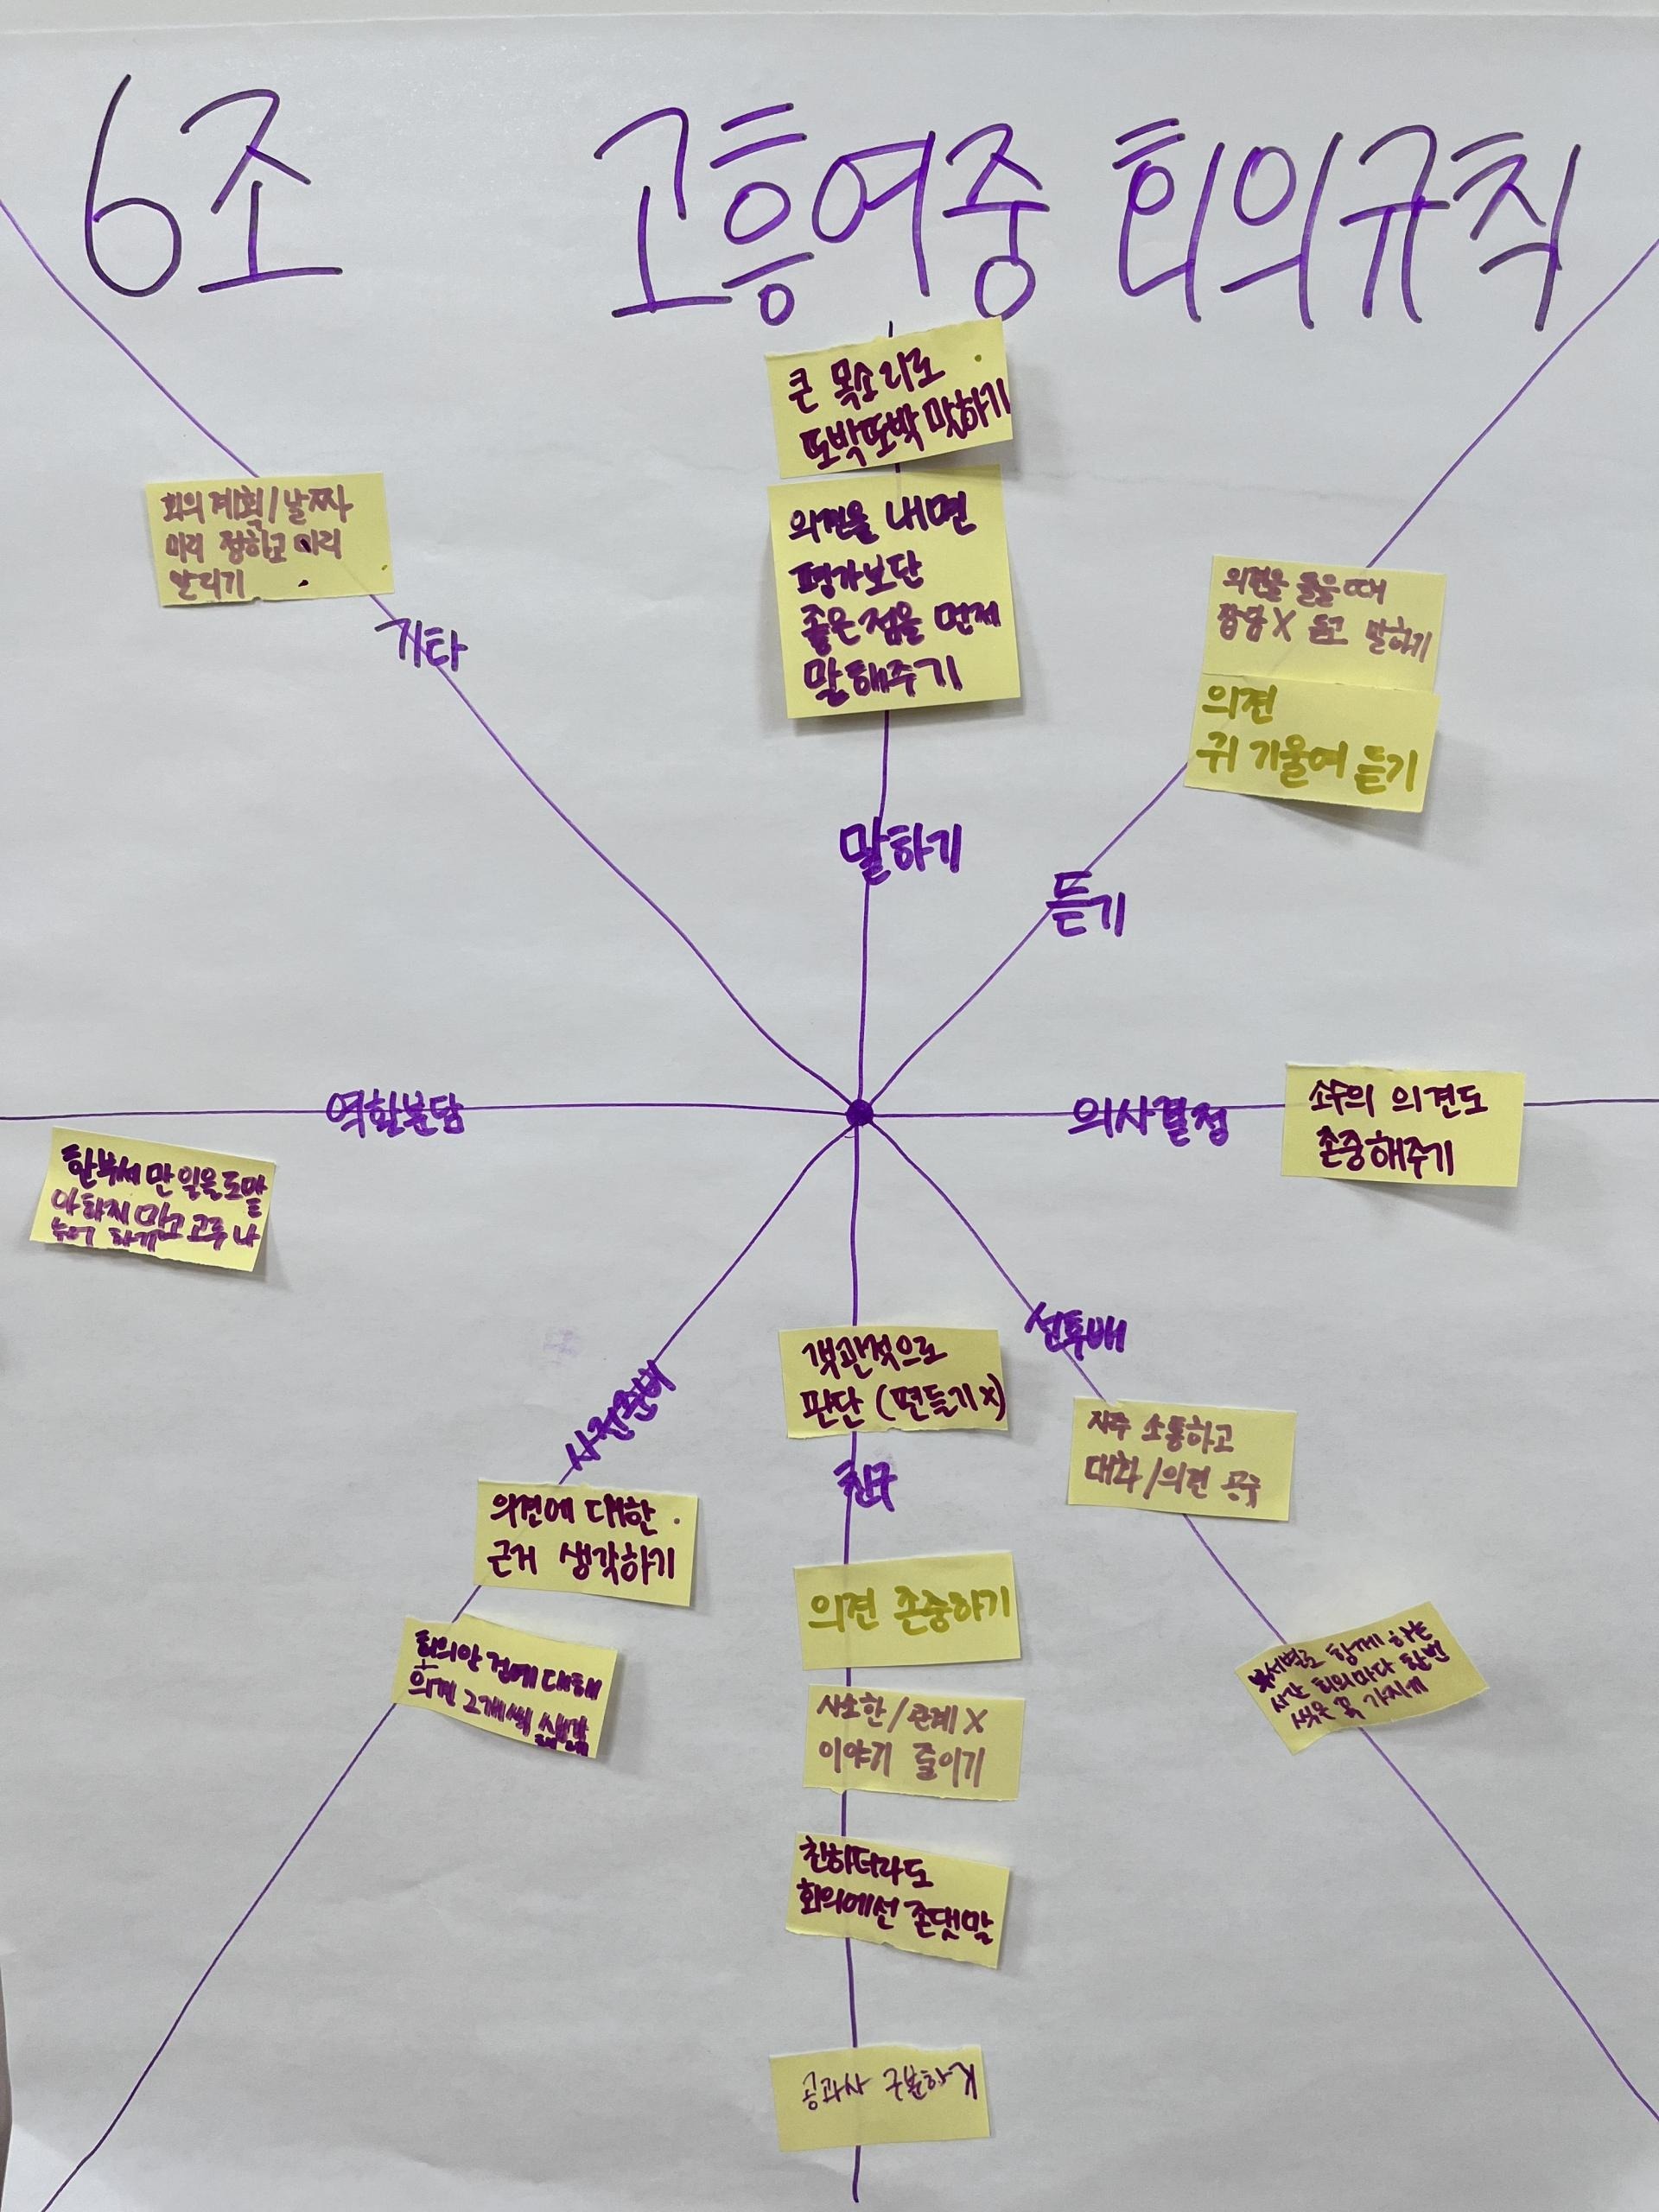 6조
고흥여중 회의규칙
큰 목소리로
또박또박 말하기
의견을 내면
평가보단
좋은점을 먼저
말해주기
말하기
의견을 들을때
잡담X 듣고 말하기
의견
귀 기울여 듣기
듣기
의사결정
소수의 의견도
존중해주기
선후배
자주 소통하고
대화/의견 공유
부서별로 함께 하는
시간 회의마다 한번
씩은 꼭 가지기
객관적으로
판단 (편들기x)
친구
의견 존중하기
사소한/관계X
이야기 줄이기
친하더라도
회의에선 존댓말
공과사 구분하기
사전준비
의견에 대한
근거 생각하기
회의안건에 대해
의견 2개씩 생각
역할분담
한부서만 일을 도맡
아 하지 말고 고루 나
누어 하기
회의 계획/날짜
미리 정하고 미리
알리기
기타